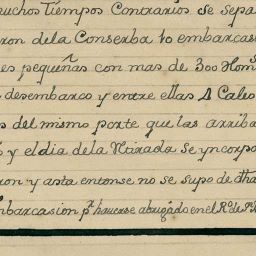 muchos Tiempos Contrarios se sepa
ron dela Conserba 10 embarcasi
es pequeñas con mas de 300 Hom
desembarco y entre ellas 4 Cales
s del mismo porte que las arriba
y el dia dela Mirada se yncorpo
ron y asta entonse no se supo de dha
mbarcasion pr. haverse abrigado en el Ro. de